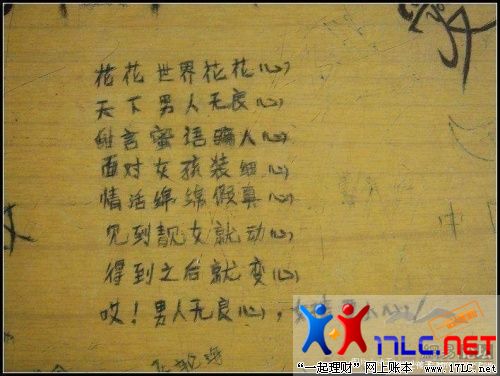 花花世界花花(心)
天下男人无良(心)
甜言蜜语骗人(心)
面对女孩装细(心)
情话绵绵假真(心)
见到靓女就动(心)
得到之后就变(心)
哎!男人无良(心),女
17LC.NET
“一起理财”网上账本 www.17LC.net